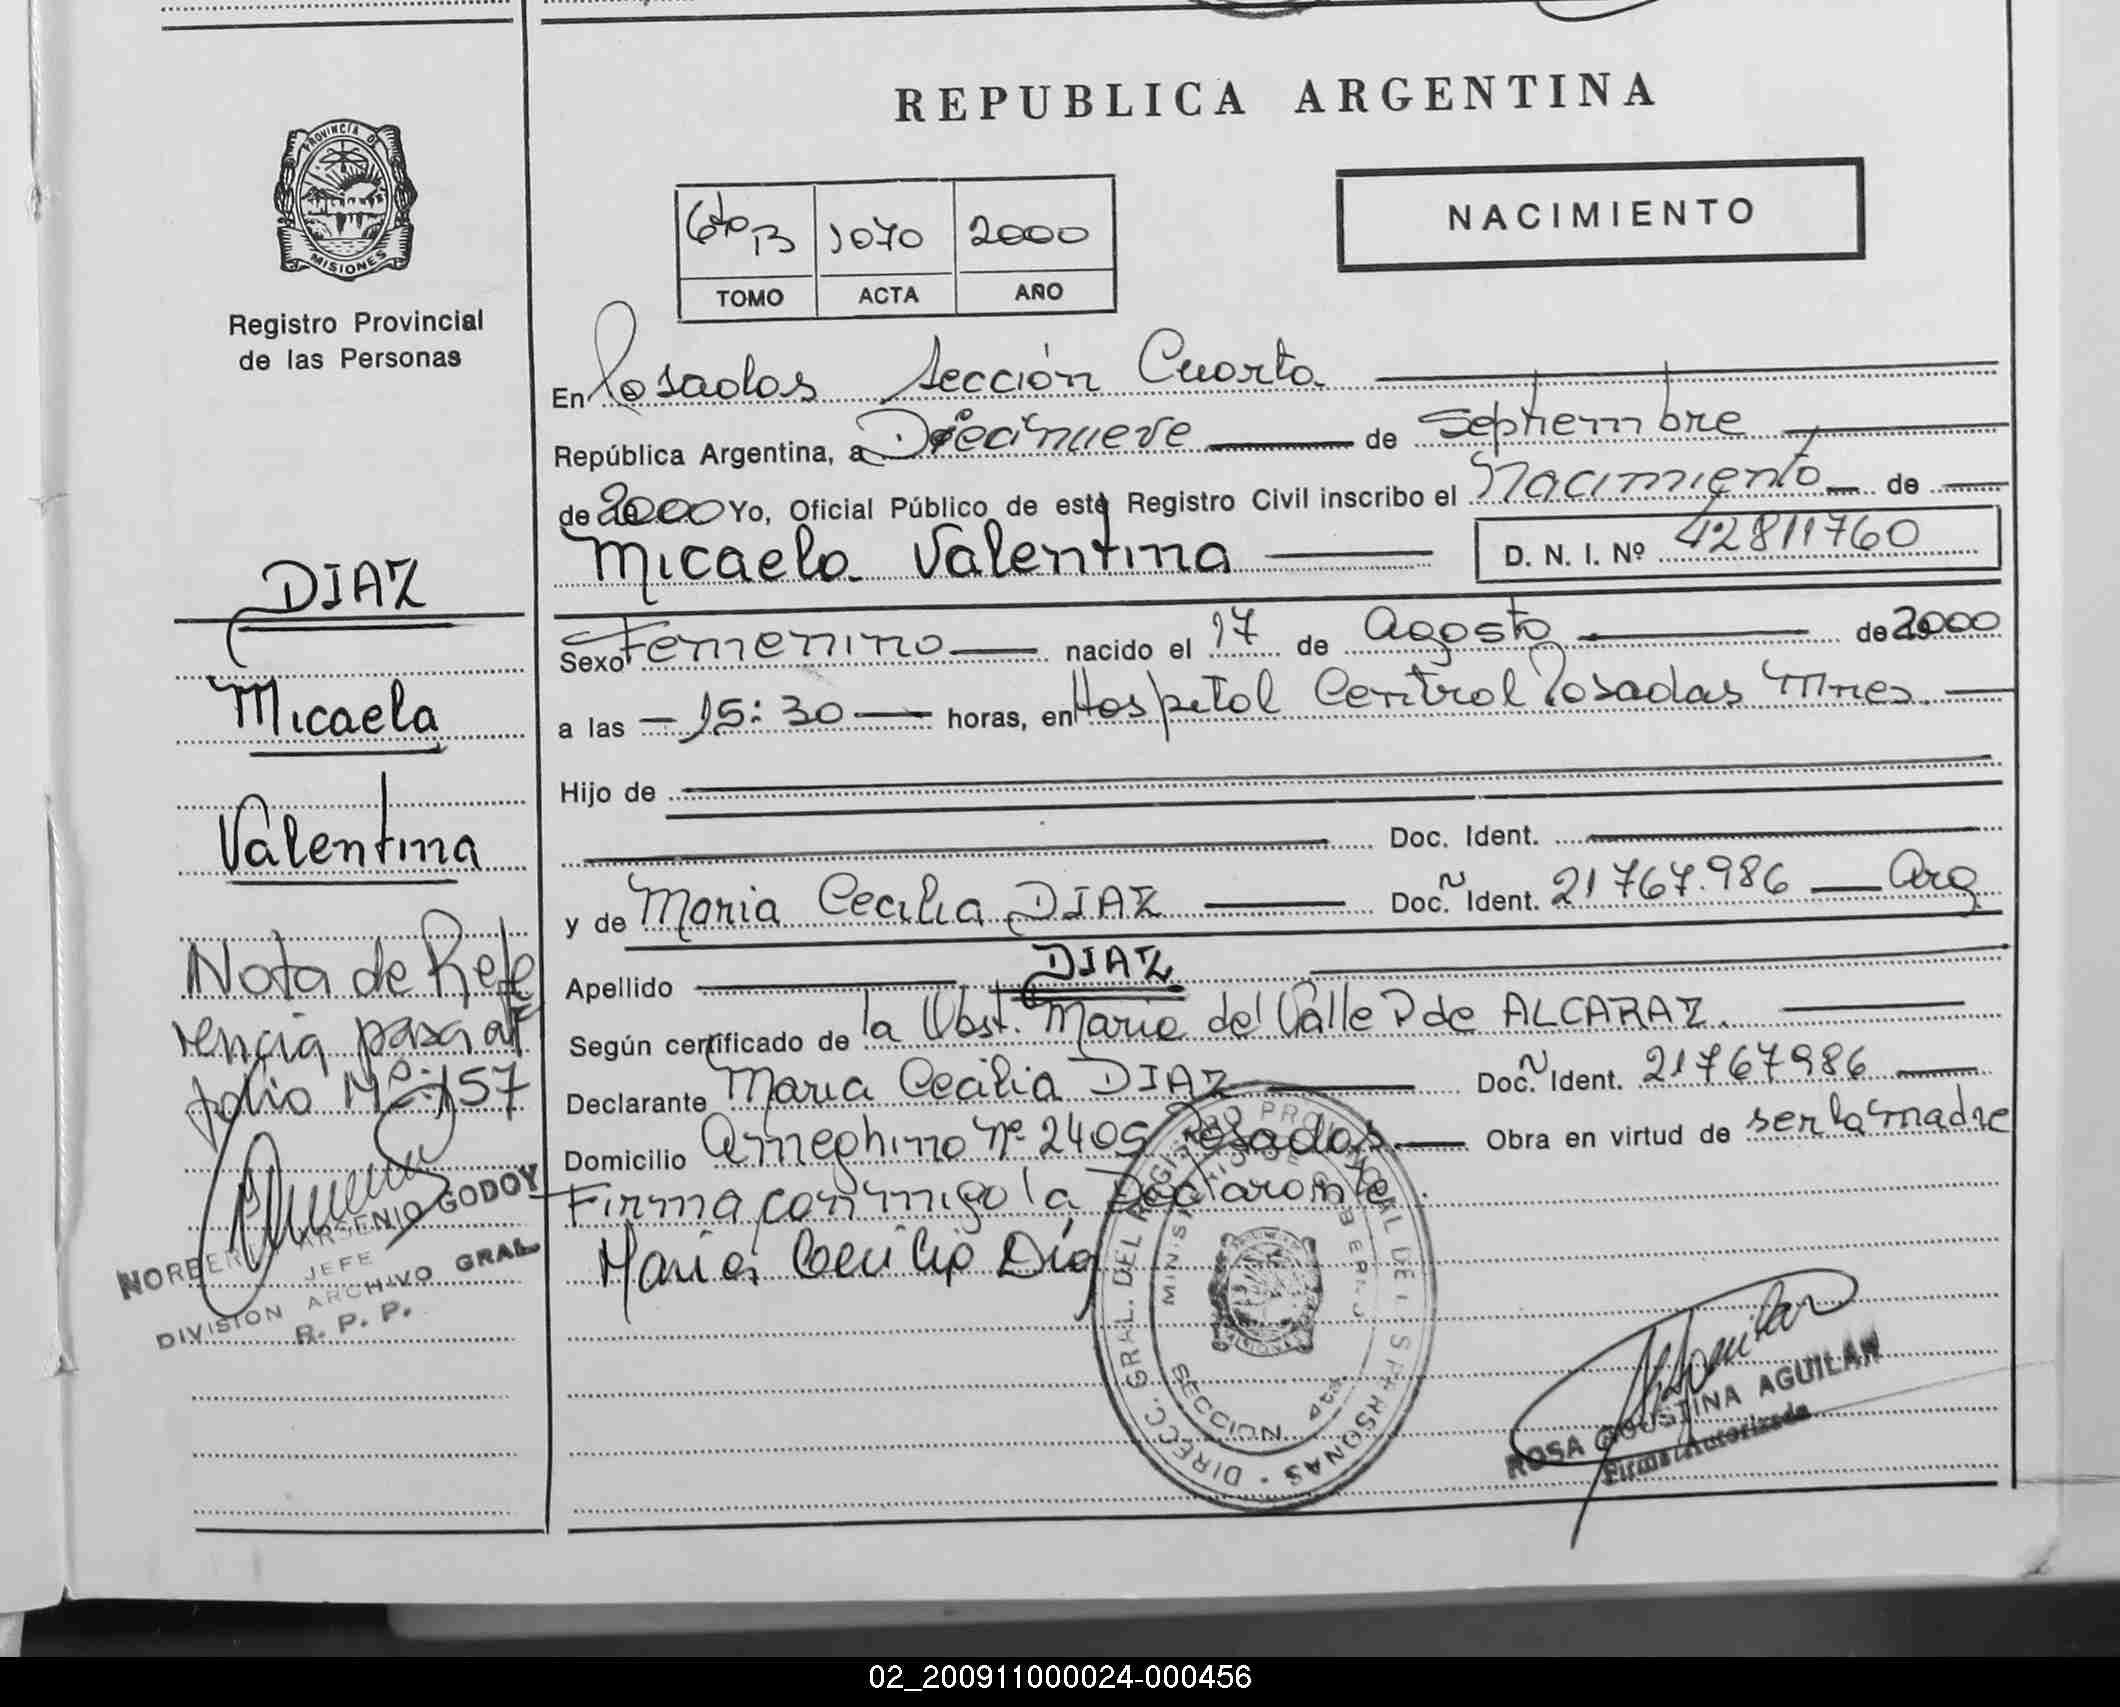 REPUBLICA ARGENTINA
PROVINCIA DE
MISIONES
Registro Provincial
de las Personas
NACIMIENTO
6to B 1070 2000
TOMO ACTA AÑO
En Posadas Sección Cuarta
República Argentina, a Diecinueve de Septiembre
de 2000 Yo, Oficial Público de este Registro Civil inscribo el Nacimiento de
Micaela Valentina D. N. I. Nº 42811760
Sexo Femenino nacido el 17 de Agosto de 2000
a las 15:30 horas, en Hospital Central Posadas Mnes.
Hijo de
Doc. Ident.
y de Maria Cecilia DIAZ Doc. Ñ Ident. 21767.986 Arg
Apellido DIAZ
Según certificado de la Obst. Maria del Valle P de ALCARAZ.
Declarante Maria Cecilia DIAZ Doc. Ñ Ident. 21767986
Domicilio Ameghino Nº 2405 Posadas. Obra en virtud de ser la madre
Firma conmigo la Declarante.
Maria Cecilia Díaz
DIAZ
Micaela
Valentina
Nota de Refe
rencia pasa al
folio Nº: 157
NORBERTO ARSENIO GODOY
JEFE
DIVISION ARCHIVO GRAL
R. P. P.
DIRECC. GRAL. DEL REGISTRO PROVINCIAL DE LAS PERSONAS
MINISTERIO DE GOBIERNO
SECCION 4ta
ROSA AGUSTINA AGUILAR
Firma Autorizada
02_200911000024-000456